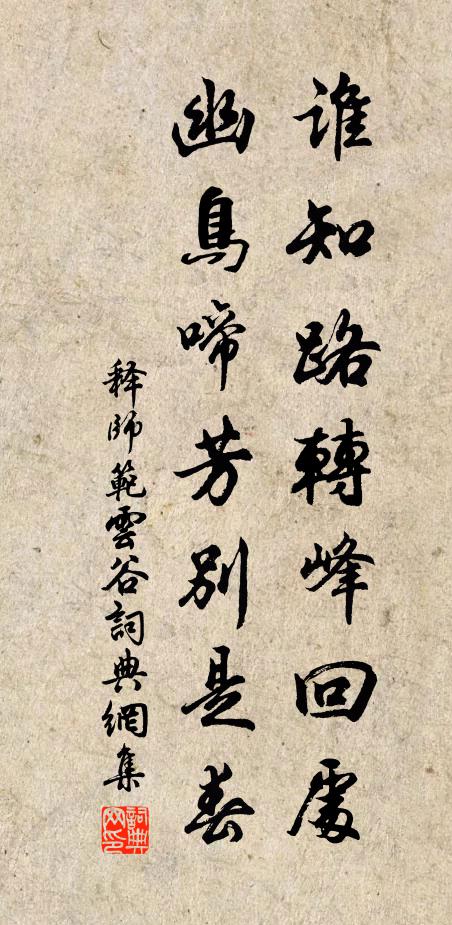 誰知路轉峰回處
幽鳥啼芳別是春
释師範雲谷詞典網集
詞典網印